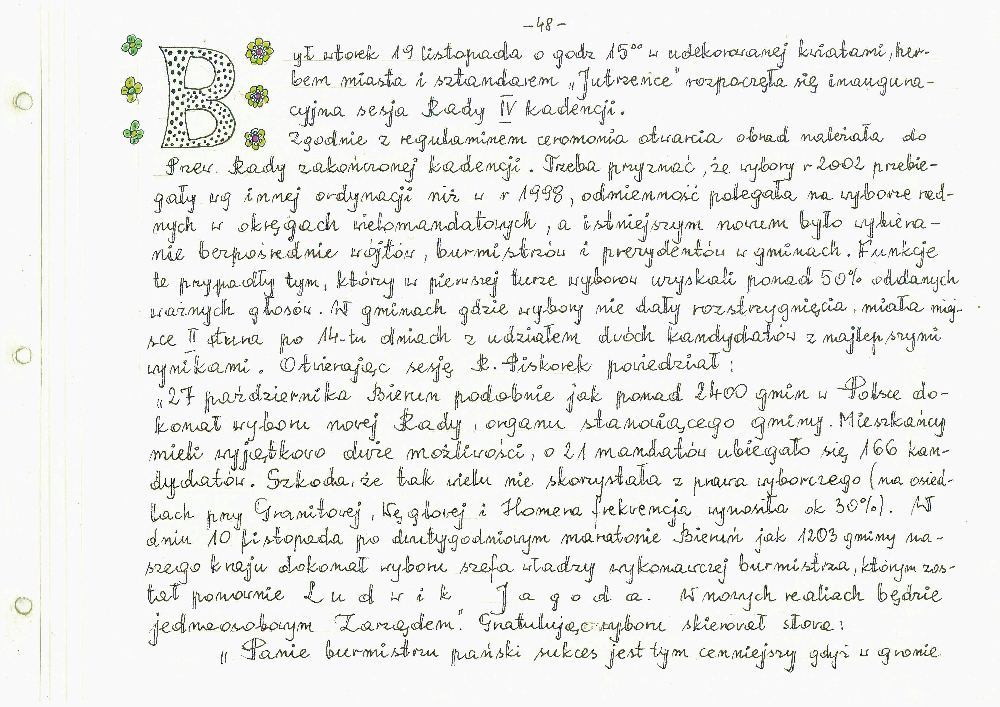 -48-
Był wtorek 19 listopada o godz 15⁰⁰ w udekorowanej kwiatami, her-
bem miasta i sztandarem „Jutrzeńce" rozpoczęła się inaugura-
cyjna sesja Rady IV kadencji.
Zgodnie z regulaminem ceremonia otwarcia obrad należała do
Przew. Rady zakończonej kadencji. Trzeba przyznać, że wybory r 2002 przebie-
gały wg innej ordynacji niż w r 1998, odmienność polegała na wyborze rad-
nych w okręgach wielomandatowych, a istniejszym novum było wybiera-
nie bezpośrednie wójtów, burmistrzów i prezydentów w gminach. Funkcje
te przypadły tym, którzy w pierwszej turze wyborów uzyskali ponad 50% oddanych
ważnych głosów. W gminach gdzie wybory nie dały rozstrzygnięcia, miała miej-
sce II tura po 14-tu dniach z udziałem dwóch kandydatów z najlepszymi
wynikami. Otwierając sesję R. Piskorek powiedział:
„27 października Bieruń podobnie jak ponad 2400 gmin w Polsce do-
konał wyboru nowej Rady, organu stanowiącego gminy. Mieszkańcy
mieli wyjątkowo duże możliwości, o 21 mandatów ubiegało się 166 kan-
dydatów. Szkoda, że tak wielu nie skorzystała z prawa wyborczego (na osied-
lach przy Granitowej, Węglowej i Homera frekwencja wynosiła ok 30%). W
dniu 10 listopada po dwutygodniowym maratonie Bieruń jak 1203 gminy na-
szego kraju dokonał wyboru szefa władzy wykonawczej burmistrza, którym zos-
tał ponownie Ludwik Jagoda. W nowych realiach będzie
jednoosobowym Zarządem". Gratulując wyboru skierował słowa:
„Panie burmistrzu pański sukces jest tym cenniejszy gdyż w gronie